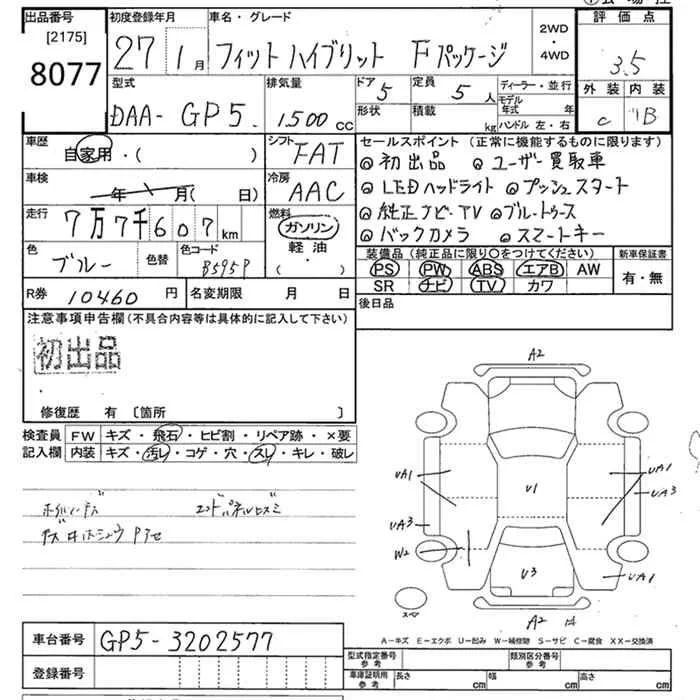 出品番号 初度登録年月 車名・グレード 評価点
[2175] 8077 27年1月 フィットハイブリット Fパッケージ 2WD・4WD 3.5
型式 排気量 ドア 5 定員 5人 ディーラー・並行 外装 内装
DAA- GP5 1500cc 形状 積載 kg モデル年式 年 ハンドル 左・右 C B
車歴 自家用・( ) シフト FAT
セールスポイント (正常に機能するものに限ります)
初出品 ユーザー買取車
車検 年 月( 日) 冷房 AAC
LEDヘッドライト プッシュスタート
走行 7万7千607km 燃料 ガソリン 軽油 ( ・ )
純正ナビ・TV ブルートゥース
バックカメラ スマートキー
色 ブルー 色替 色コード B595P
装備品 (純正品に限り○をつけてください) 新車保証書
PS PW ABS エアB AW 有・無
SR ナビ TV カワ
R券 10460円 名変期限 月 日 後日品
注意事項申告欄(不具合内容等は具体的に記入して下さい)
初出品
修復歴 有 〔箇所 〕
検査員 FW キズ・飛石・ヒビ割・リペア跡・×要
記入欄 内装 キズ・汚レ・コゲ・穴・スレ・キレ・破レ
A2
UA1 U1 UA1
UA3
UA3
W2
U3 UA1
スペア
A2
A−キズ E−エクボ U−凹み W−補修跡 S−サビ C−腐食 XX−交換済
車台番号 GP5-3202577
登録番号
型式指定番号 参考 類別区分番号 参考
車庫証明用 参考 長さ cm 幅 cm 高さ cm